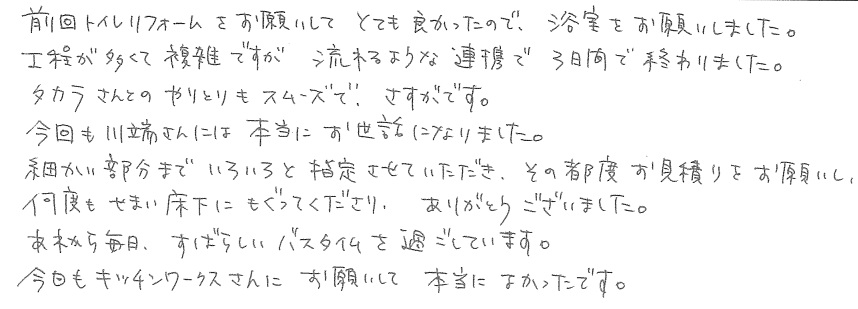 前回トイレリフォームをお願いしてとても良かったので、浴室をお願いしました。
工程が多くて複雑ですが流れるような連携で3日間で終わりました。
タカラさんとのやりとりもスムーズで、さすがです。
今回も川端さんには本当にお世話になりました。
細かい部分までいろいろと指定させていただき、その都度お見積りをお願いし、
何度もせまい床下にもぐってくださり、ありがとうございました。
あれから毎日、すばらしいバスタイムを過ごしています。
今回もキッチンワークスさんにお願いして本当によかったです。